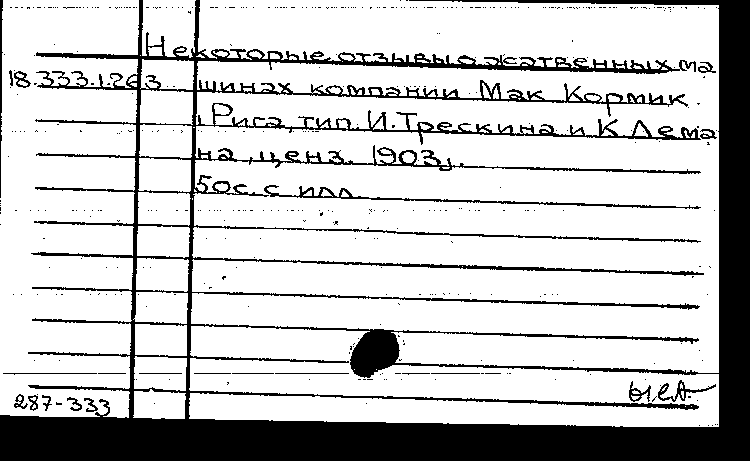 Некоторые отзывы о жатвенных ма
18.333.1.263 шинах компании Мак Кормик.
Рига, тип. И. Трескина и К Лема
на, ценз. 1903г.
50с. с илл
287-333